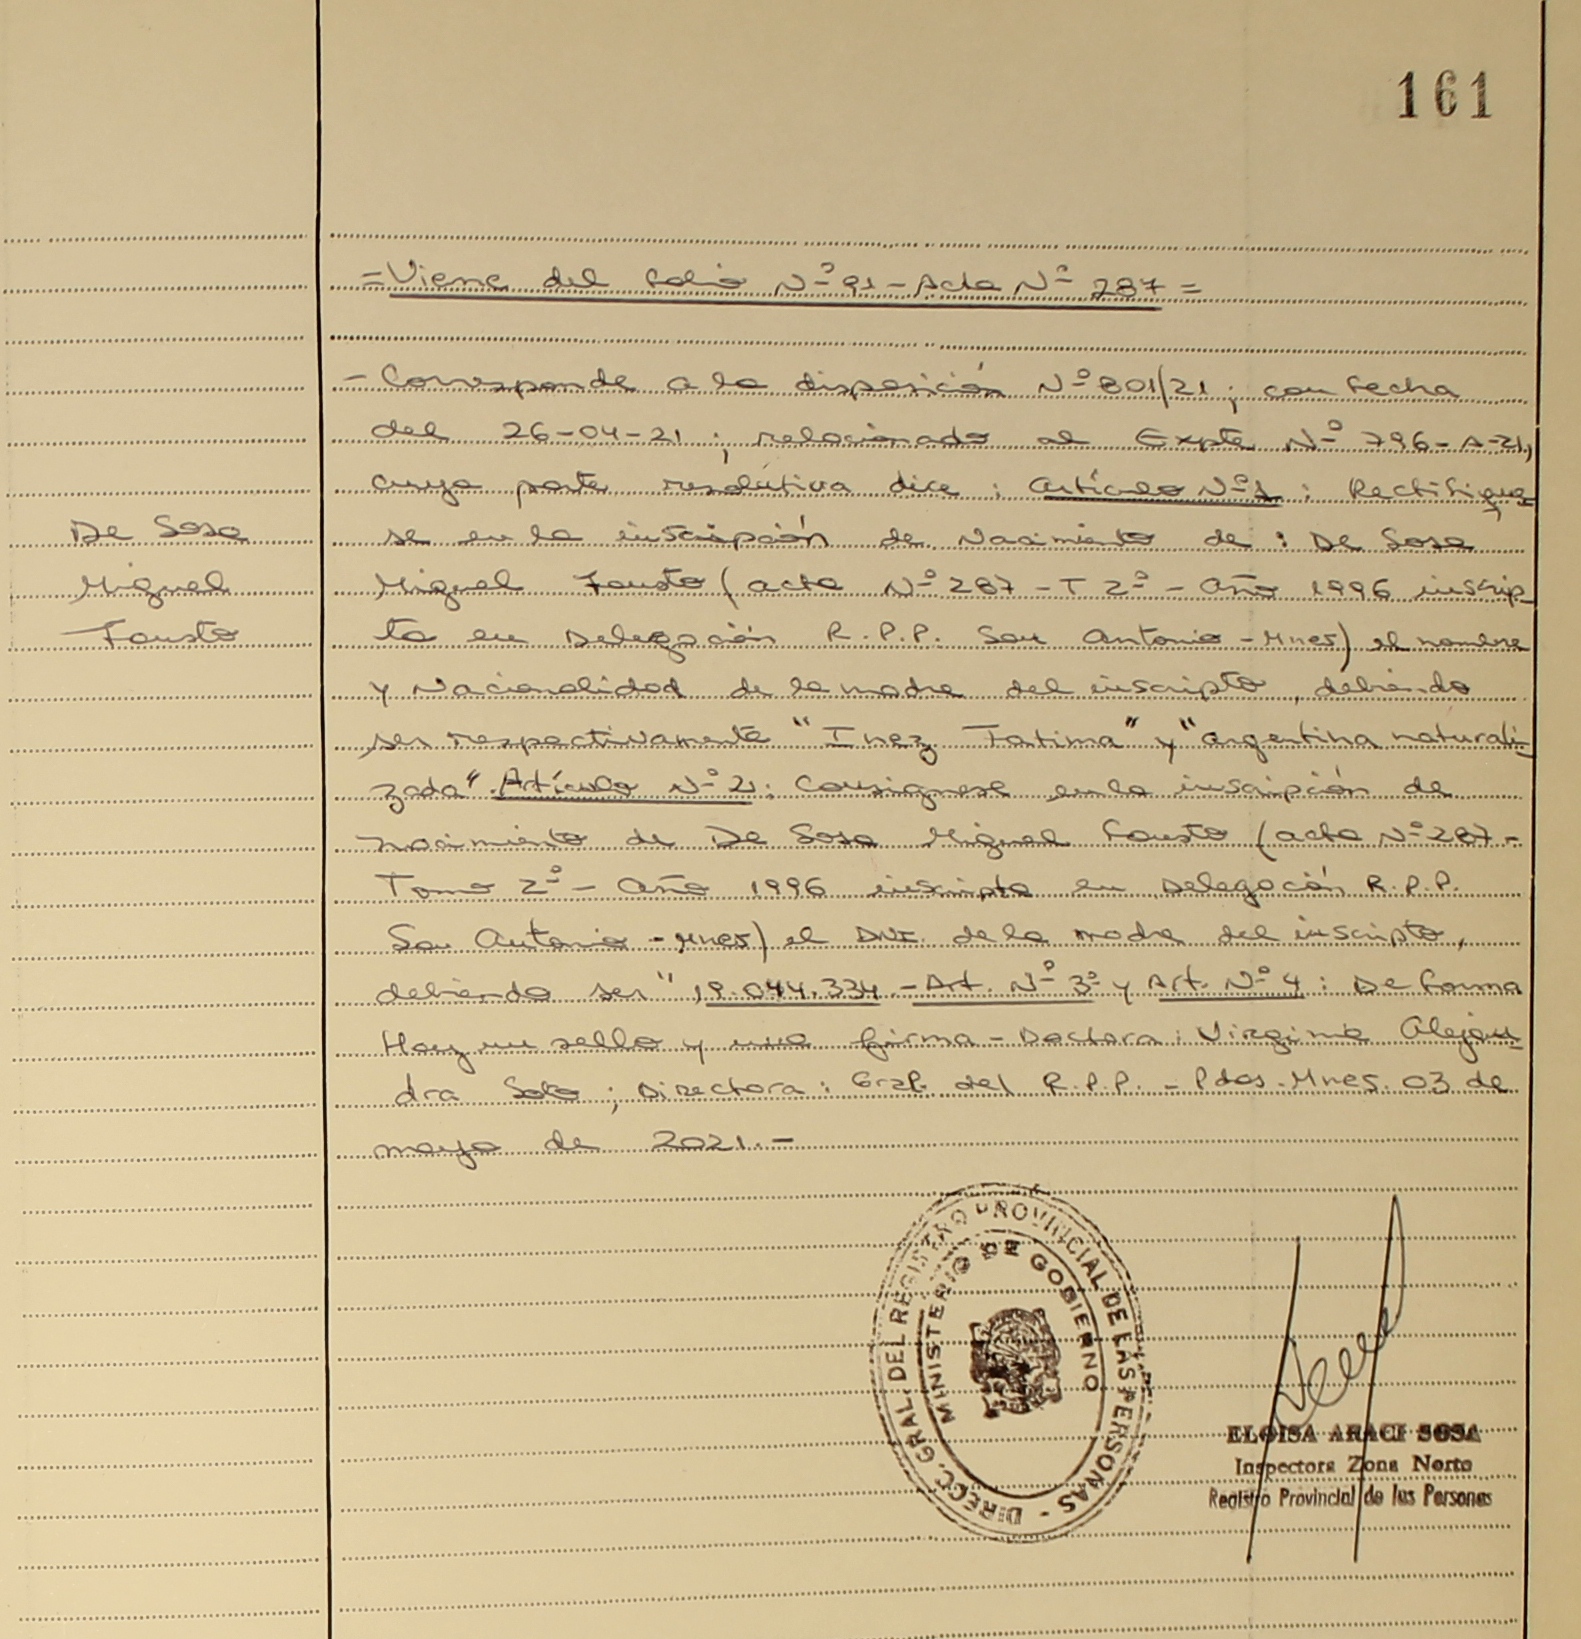 161
=Viene del folio Nº 91-Acta Nº 287=
-Corresponde a la disposición Nº 801/21; con fecha
del 26-04-21; relacionado al Expte Nº 796-A-21,
cuya parte resolutiva dice: Artículo Nº1: Rectifique-
De Sosa
se en la inscripción de Nacimiento de: De Sosa
Miguel
Miguel Fausto (acta Nº 287-T 2º-Año 1996 inscrip-
Fausto
ta en Delegación R.P.P. San Antonio-Mnes) el nombre
y Nacionalidad de la madre del inscripto, debiendo
ser respectivamente "Inez Fatima" y "argentina naturali-
zada". Artículo Nº 2: Consignese en la inscripción de
nacimiento de De Sosa Miguel Fausto (acta Nº 287-
Tomo 2º-Año 1996 inscripta en Delegación R.P.P.
San Antonio-Mnes) el DNI. de la madre del inscripto,
debiendo ser "19.044.334.-Art. Nº 3º y Art. Nº 4: De forma
Hay un sello y una firma-Doctora: Virginia Alejan-
dra Soto; Directora: Gral. del R.P.P.-Pdas.Mnes. 03 de
mayo de 2021.-
DIRECC. GRAL. DEL REGISTRO PROVINCIAL DE LAS PERSONAS -
MINISTERIO DE GOBIERNO
ELOISA ARACI SOSA
Inspectora Zona Norte
Registro Provincial de las Personas